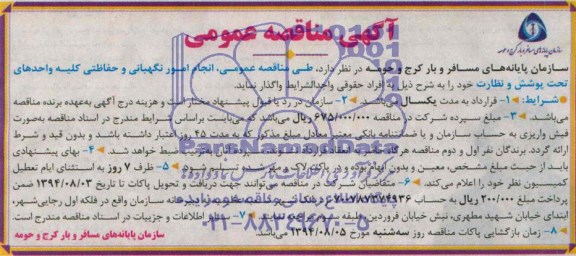 آگهی مناقصه عمومی
سازمان پایانه‌های مسافر و بار کرج و حومه
سازمان پایانه‌های مسافر و بار کرج و حومه در نظر دارد، طی مناقصه عمومی، انجام امور نگهبانی و حفاظتی کلیه واحدهای
تحت پوشش و نظارت خود را به شرح ذیل به افراد حقوقی واجدالشرایط واگذار نماید.
●شرایط: ۱- قرارداد به مدت یکسال می‌باشد. ۲- سازمان در رد یا قبول پیشنهاد مختار است و هزینه درج آگهی به‌عهده برنده مناقصه
می‌باشد. ۳- مبلغ سپرده شرکت در مناقصه ۶۷۵/۰۰۰/۰۰۰ ریال می‌باشد که می‌بایست براساس شرایط مندرج در اسناد مناقصه به‌صورت
فیش واریزی به حساب سازمان و یا ضمانتنامه بانکی معتبر معادل مبلغ مذکور که به مدت ۴۵ روز اعتبار داشته باشد و بدون قید و شرط
ارائه گردد. برندگان نفر اول و دوم مناقصه هرگاه حاضر به انعقاد قرارداد نشوند سپرده آنان به‌ترتیب ضبط خواهد شد. ۴- بهای پیشنهادی
باید از حیث مبلغ مشخص، معین و بدون ابهام در پاکت لاک و مهر شده ۵- ظرف ۷ روز به استثنای ایام تعطیل
کمیسیون نظر خود را اعلام می‌کند. ۶- متقاضیان شرکت در مناقصه می‌توانند جهت دریافت و تحویل پاکات تا تاریخ ۱۳۹۴/۰۸/۰۳ ضمن
پرداخت مبلغ ۲۰۰/۰۰۰ ریال به حساب سازمان واقع در فلکه اول رجایی‌شهر،
ابتدای خیابان شهید مطهری، نبش خیابان فروردین، ۷- سایر اطلاعات و جزییات در اسناد مناقصه مندرج است.
۸- زمان بازگشایی پاکات مناقصه روز سه‌شنبه مورخ ۱۳۹۴/۰۸/۰۵ می‌باشد.
سازمان پایانه‌های مسافر و بار کرج و حومه
ParsNamadData
۰۲۱-۸۸۳۴۹۶۷۰-۵